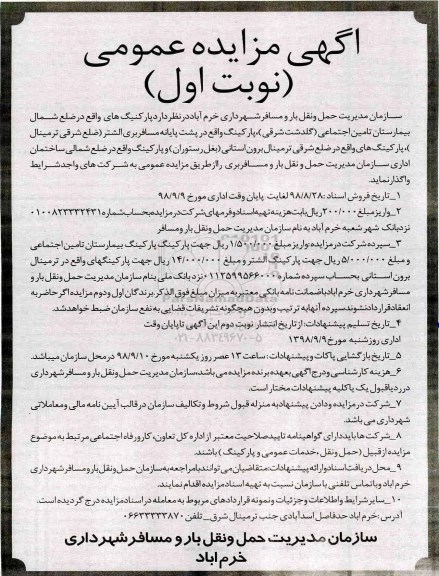 آگهی مزایده عمومی
(نوبت اول)
سازمان مدیریت حمل ونقل بار و مسافر شهرداری خرم آباد در نظر دارد پارکنیگ های واقع در ضلع شمال
بیمارستان تامین اجتماعی (گلدشت شرقی)، پارکینگ واقع در پشت پایانه مسافربری الشتر (ضلع شرقی ترمینال
)، پارکینگ های واقع در ضلع شرقی ترمینال برون استانی (بغل رستوران) و پارکینگ واقع در ضلع شمالی ساختمان
اداری سازمان مدیریت حمل و نقل بار و مسافربری را از طریق مزایده عمومی به شرکت های واجد شرایط
واگذار نماید.
۱_تاریخ فروش اسناد: ۹۸/۸/۲۸ لغایت پایان وقت اداری مورخ ۹۸/۹/۹
۲_واریز مبلغ ۲۰۰/۰۰۰ ریال بابت هزینه تهیه اسناد و فرمهای شرکت در مزایده بحساب شماره ۰۱۰۰۸۲۳۳۳۲۴۳۱
نزد بانک شهر شعبه خرم آباد به نام سازمان مدیریت حمل ونقل بار و مسافر
۳_سپرده شرکت در مزایده: واریز مبلغ ۱/۵۰۰/۰۰۰ ریال جهت پارکینگ پارکینگ بیمارستان تامین اجتماعی
و مبلغ ۵/۰۰۰/۰۰۰ ریال جهت پارکینگ الشتر و مبلغ ۱۴/۰۰۰/۰۰۰ ریال جهت پارکینگهای واقع در ترمینال
برون استانی بحساب سپرده شماره ۰۱۱۲۵۹۹۵۶۶۰۰۰ نزد بانک ملی بنام سازمان مدیریت حمل ونقل بار و
مسافر شهرداری خرم اباد یا ضمانت نامه بانکی معتبر به میزان مبلغ فوق الذکر. برندگان اول و دوم مزایده اگر حاضر به
انعقاد قرارداد نشوند سپرده آنها به ترتیب و بدون هیچگونه تشریفات قضایی به نفع سازمان ضبط خواهد شد.
۴_تاریخ تسلیم پیشنهادات: از تاریخ انتشار نوبت دوم این آگهی تا پایان وقت
اداری روز شنبه مورخ ۱۳۹۸/۹/۹
۵_تاریخ بازگشایی پاکات و پیشنهادات: ساعت ۱۳ عصر روز یکشنبه مورخ ۹۸/۹/۱۰ در محل سازمان میباشد.
۶_هزینه کارشناسی و درج آگهی بعهده برنده مزایده می باشد، سازمان مدیریت حمل ونقل بار و مسافر شهرداری
در رد یا قبول یک یا کلیه پیشنهادات مختار است.
۷_شرکت در مزایده و دادن پیشنهاد به منزله قبول شروط و تکالیف سازمان در قالب آیین نامه مالی و معاملاتی
شهرداری می باشد.
۸_شرکت ها باید دارای گواهینامه تایید صلاحیت معتبر از اداره کل تعاون، کار و رفاه اجتماعی مرتبط به موضوع
مزایده از قبیل (حمل ونقل، خدمات عمومی و پارکینگ) باشند.
۹_محل دریافت اسناد و ارائه پیشنهادات: متقاضیان می توانند با مراجعه به سازمان حمل ونقل بار و مسافر شهرداری
خرم اباد و یا تماس تلفنی با سازمان نسبت به تهیه اسناد مزایده اقدام نمایند.
۱۰_سایر شرایط و اطلاعات و جزئیات و نمونه قراردادهای مربوط به معامله در اسناد مزایده درج گردیده است.
آدرس: خرم آباد حدفاصل اسدآبادی جنب ترمینال شرق _ تلفن ۰۶۶۳۳۳۳۳۸۷۰
سازمان مدیریت حمل و نقل بار و مسافر شهرداری
خرم اباد
ParsNamadData
۰۲۱-۸۸۳۴۹۶۷۰-۵